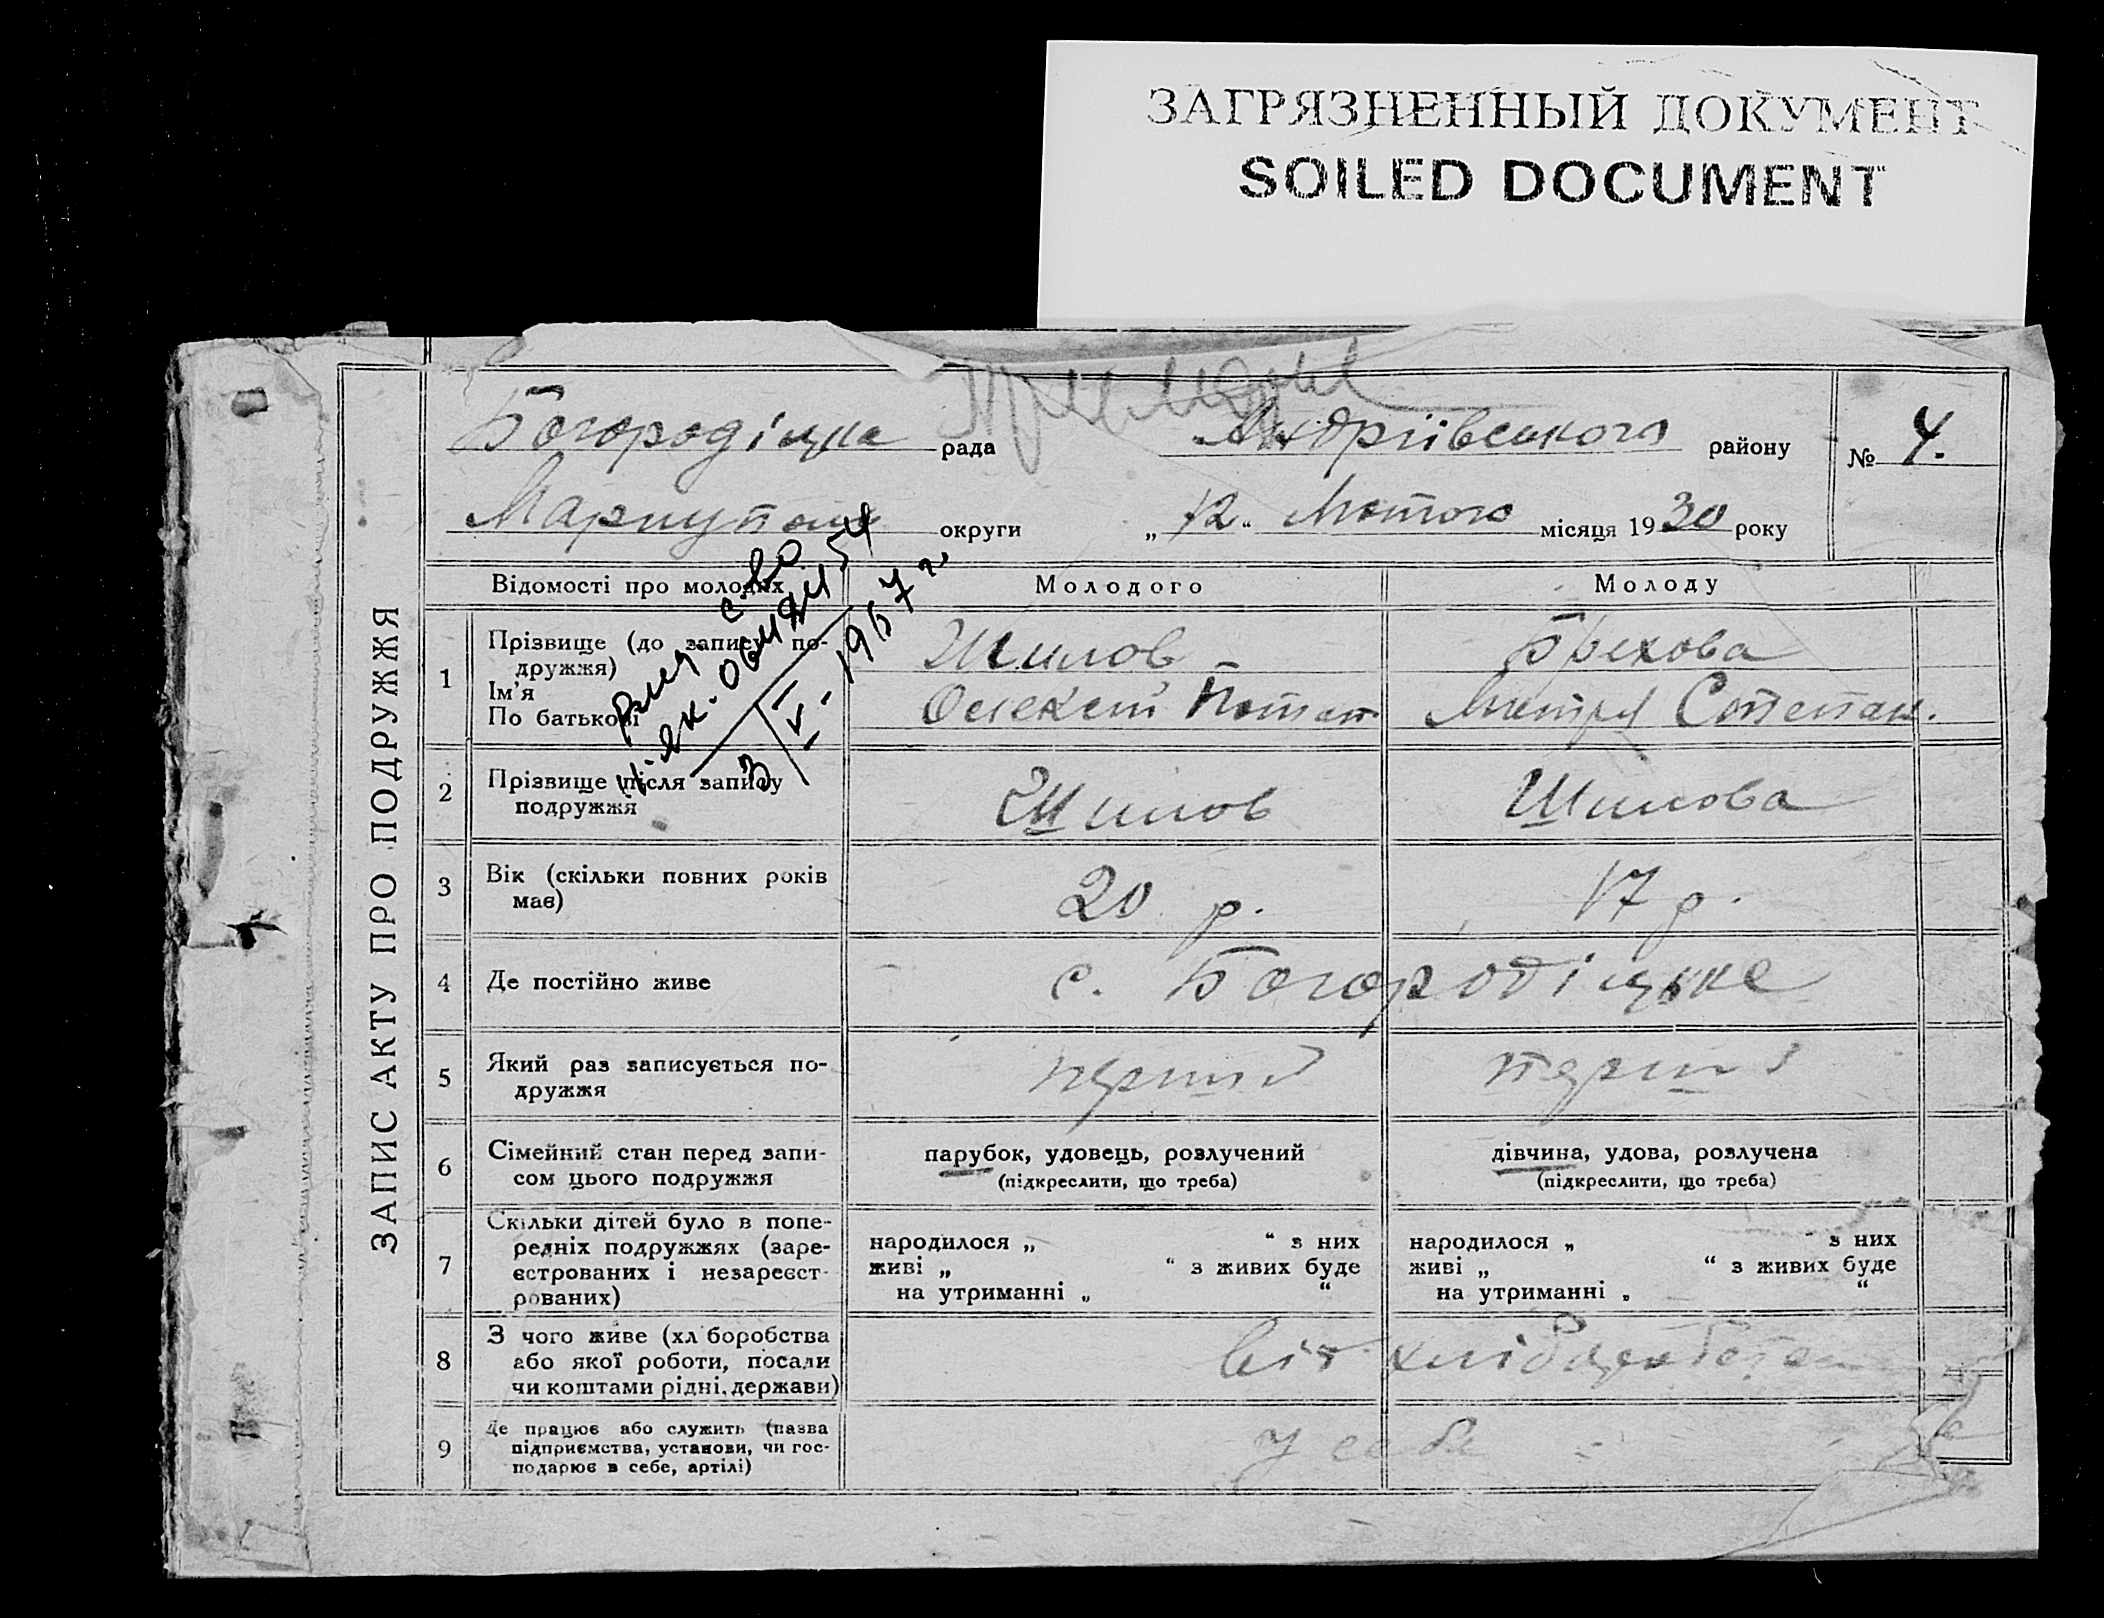 ЗАГРЯЗНЕННЫЙ ДОКУМЕНТ
SOILED DOCUMENT
ЗАПИС АКТУ ПРО ПОДРУЖЖЯ
Богородіцка рада Андріївського району № 4.
округи „12“ Лютого місяця 1930 року
Відомості про молодих Молодого Молоду
1 Прізвище (до запису по-
дружжя)
Ім’я
По батькові
Шилов
Брехова
Степан.
3/V-1967 г.
2 Прізвище після запису
подружжя
Шилов
Шилова
3 Вік (скільки повних років
має)
20 р.
17 р.
4 Де постійно живе
с. Богородіцьке
5 Який раз записується по-
дружжя
перший
6 Сімейний стан перед запи-
сом цього подружжя
парубок, удовець, розлучений
(підкреслити, що треба)
дівчина, удова, розлучена
(підкреслити, що треба)
7 Скільки дітей було в попе-
редніх подружжях (заре-
єстрованих і незареєст-
рованих)
народилося „ “ з них
живі „ “ з живих буде
на утриманні „ “
народилося „ “ з них
живі „ “ з живих буде
на утриманні „ “
8 З чого живе (хліборобства
або якої роботи, посади
чи коштами рідні, держави)
9 Де працює або служить (назва
підприємства, установи, чи гос-
подарює в себе, артілі)
у себе